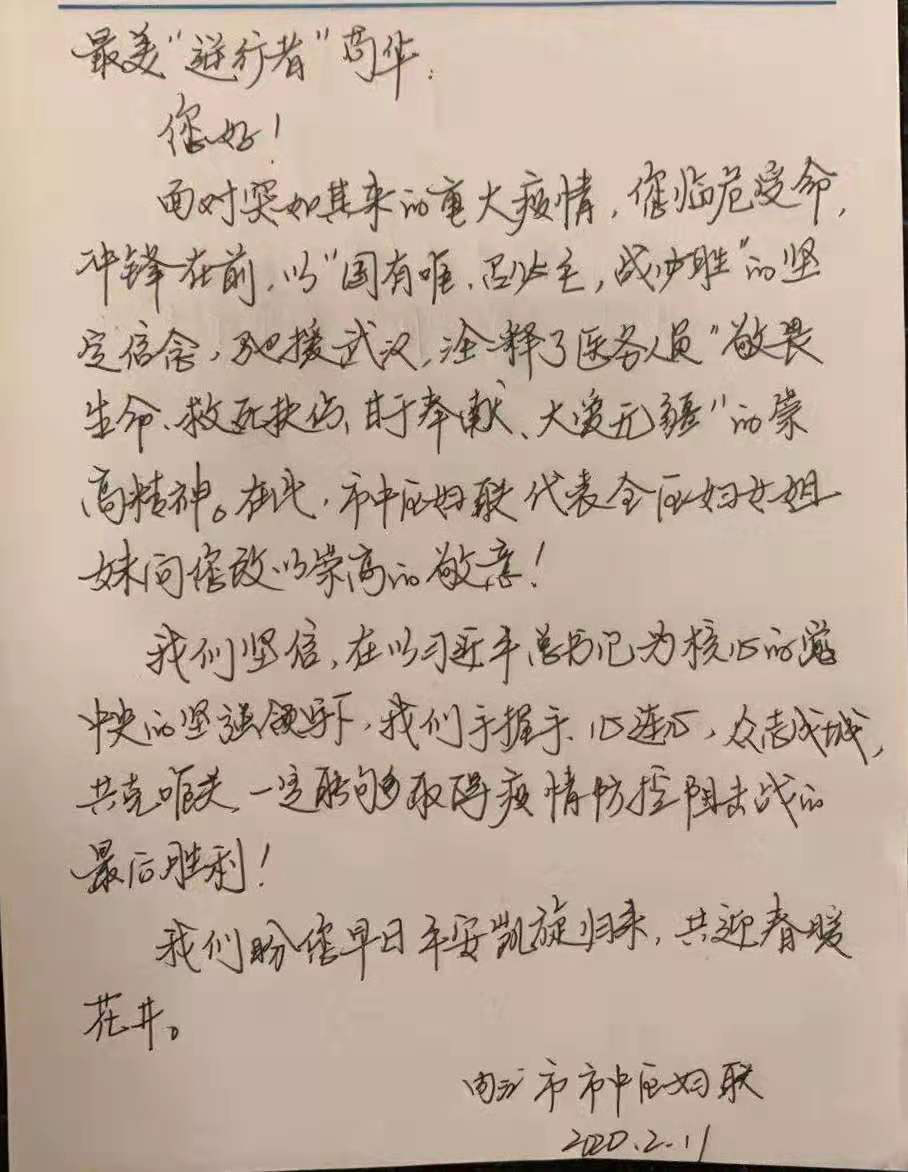 最美“逆行者”苟华:
您好!
面对突如其来的重大疫情,您临危受命,
冲锋在前,以“国有难,召必至,战必胜”的坚
定信念,驰援武汉,诠释了医务人员“敬畏
生命、救死扶伤、甘于奉献、大爱无疆”的崇
高精神。在此,市中区妇联代表全区妇女姐
妹向您致以崇高的敬意!
我们坚信,在以习近平总书记为核心的党
中央的坚强领导下,我们手握手、心连心,众志成城,
共克难关,一定能够取得疫情防控阻击战的
最后胜利!
我们盼您早日平安凯旋归来,共迎春暖
花开。
内江市市中区妇联
2020.2.11